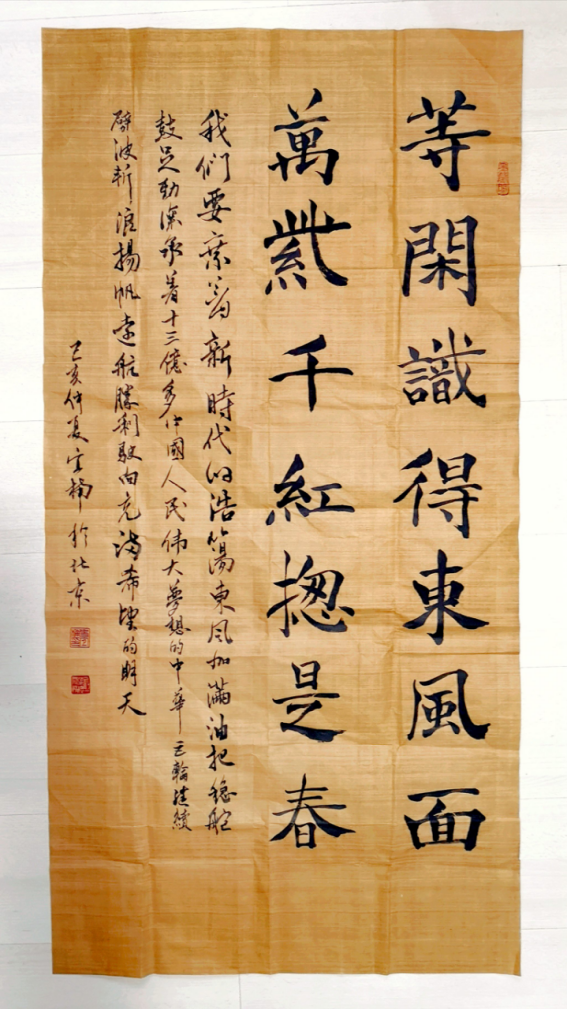 等閑識得東風面
萬紫千紅揔是春
我们要乘着新時代的浩蕩東風加滿油把穩舵
鼓足勁讓承着十三億多中國人民伟大夢想的中華巨輪继續
劈波斬浪揚帆遠航勝利駛向充滿希望的明天
己亥仲夏 於北京